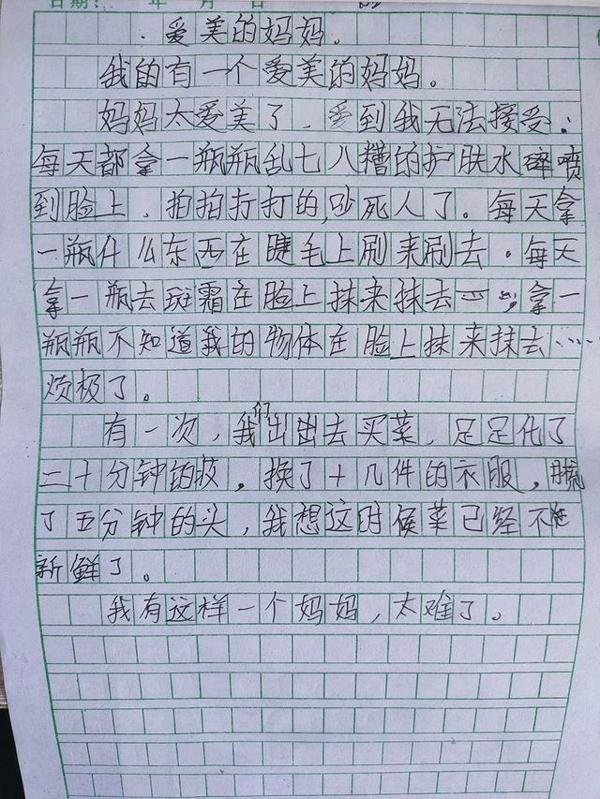 日期： 年 月 日
爱美的妈妈。
我的有一个爱美的妈妈。
妈妈太爱美了，爱到我无法接受：
每天都拿一瓶瓶乱七八糟的护肤水喷
到脸上，拍拍打打的，吵死人了。每天拿
一瓶什么东西在睫毛上刷来刷去。每天
拿一瓶去斑霜在脸上抹来抹去……；拿一
瓶瓶不知道我的物体在脸上抹来抹去……
烦极了。
有一次，我们出出去买菜，足足化了
二十分钟的妆，换了十几件的衣服，梳
了五分钟的头，我想这时候菜已经不
新鲜了。
我有这样一个妈妈，太难了。